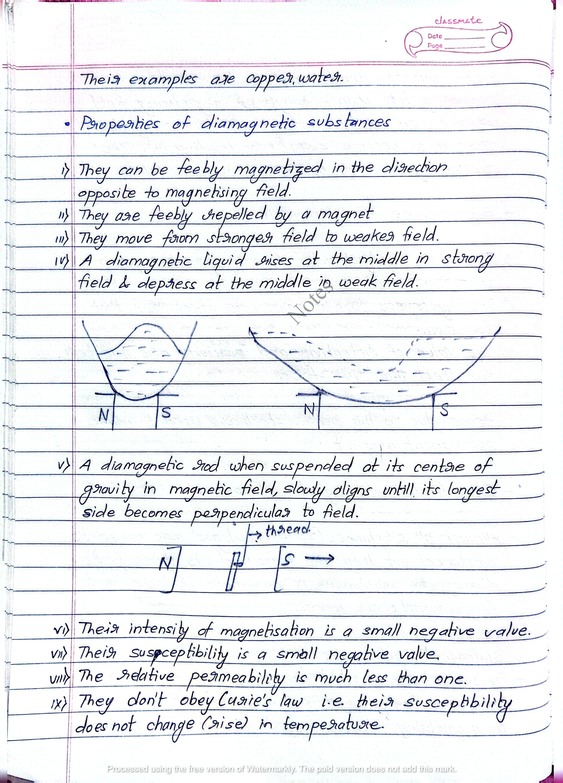 classmate
Date
Page
Their examples are copper, water.
• Properties of diamagnetic substances
i) They can be feebly magnetized in the direction
opposite to magnetising field.
ii) They are feebly repelled by a magnet
iii) They move from stronger field to weaker field.
iv) A diamagnetic liquid rises at the middle in strong
field & depress at the middle in weak field.
Notes
N S N S
v) A diamagnetic rod when suspended at its centre of
gravity in magnetic field, slowly aligns untill its longest
side becomes perpendicular to field.
→ thread
N S →
vi) Their intensity of magnetisation is a small negative value.
vii) Their susceptibility is a small negative value.
viii) The relative permeability is much less than one.
ix) They don't obey Curie's law i.e. their susceptibility
does not change (rise) in temperature.
Processed using the free version of Watermarkly. The paid version does not add this mark.